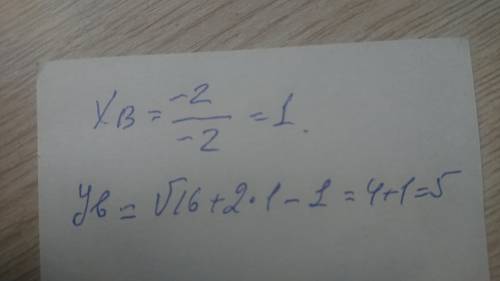 Xв = -2/-2 = 1.
Yв = √16 + 2·1 - 1 = 4 + 1 = 5